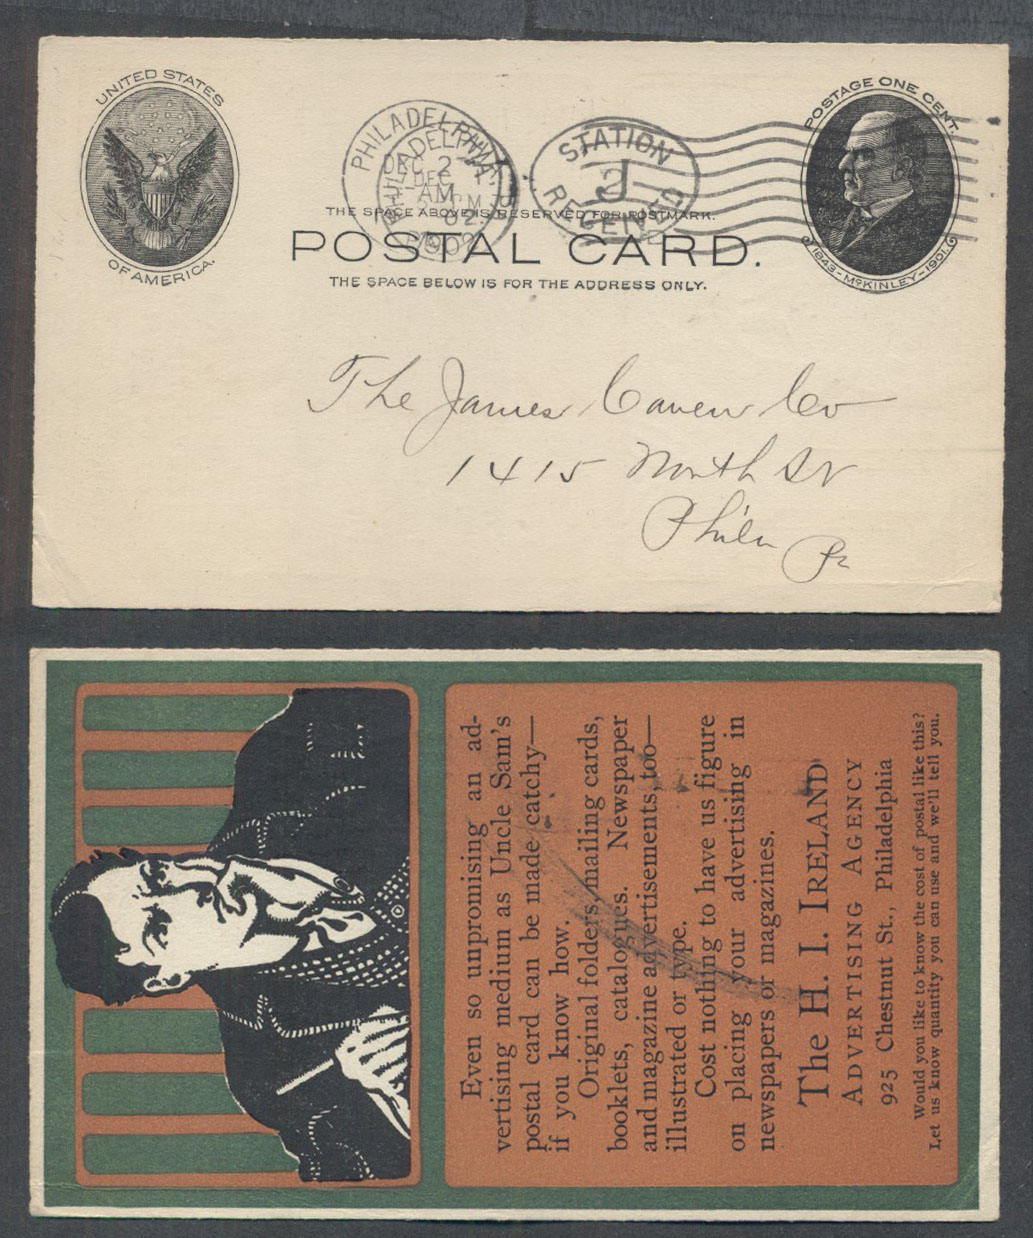 UNITED STATES
OF AMERICA.
PHILADELPHIA
DEC 2
AM
STATION
J
RECEIVED
POSTAGE ONE CENT.
1843-McKINLEY-1901.
THE SPACE ABOVE IS RESERVED FOR POSTMARK.
POSTAL CARD.
THE SPACE BELOW IS FOR THE ADDRESS ONLY.
The James Caven Co
1415 North St
Phila Pa
Even so unpromising an ad-
vertising medium as Uncle Sam's
postal card can be made catchy—
if you know how.
Original folders, mailing cards,
booklets, catalogues. Newspaper
and magazine advertisements, too—
illustrated or type.
Cost nothing to have us figure
on placing your advertising in
newspapers or magazines.
The H. I. IRELAND
ADVERTISING AGENCY
925 Chestnut St., Philadelphia
Would you like to know the cost of postal like this?
Let us know quantity you can use and we'll tell you.